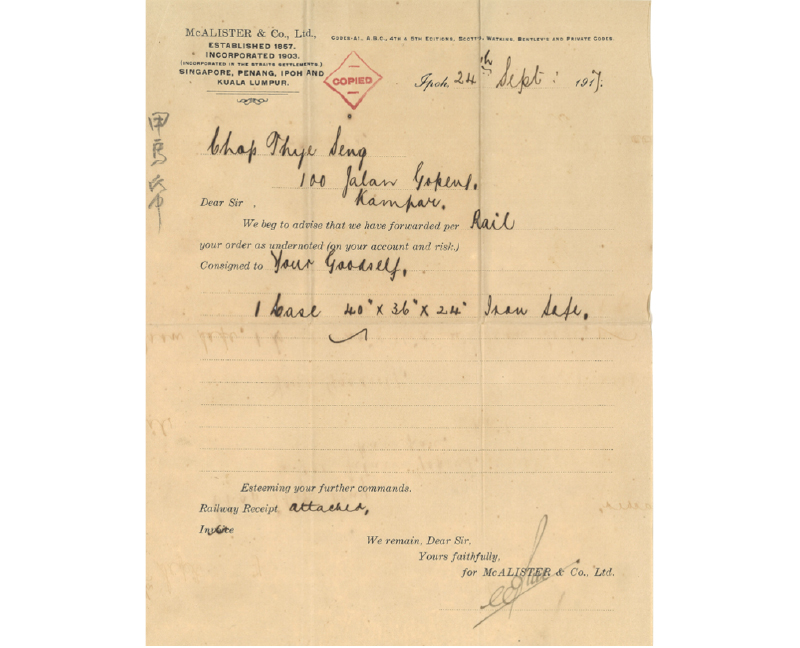 McALISTER & Co., Ltd.,
ESTABLISHED 1857.
INCORPORATED 1903.
(INCORPORATED IN THE STRAITS SETTLEMENTS.)
SINGAPORE, PENANG, IPOH AND
KUALA LUMPUR.
CODES-A1., A.B.C., 4TH & 5TH EDITIONS, SCOTTS, WATKINS, BENTLEY'S AND PRIVATE CODES.
COPIED
Ipoh, 24th Sept: 1917.
Chop Thye Seng
100 Jalan Gopeng.
Kampar.
Dear Sir
We beg to advise that we have forwarded per Rail
your order as undernoted (on your account and risk.)
Consigned to Your Goodself.
1 Case 40" x 36" x 24" Iron Safe.
Esteeming your further commands.
Railway Receipt attached.
Invoice
We remain, Dear Sir,
Yours faithfully,
for McALISTER & Co., Ltd.